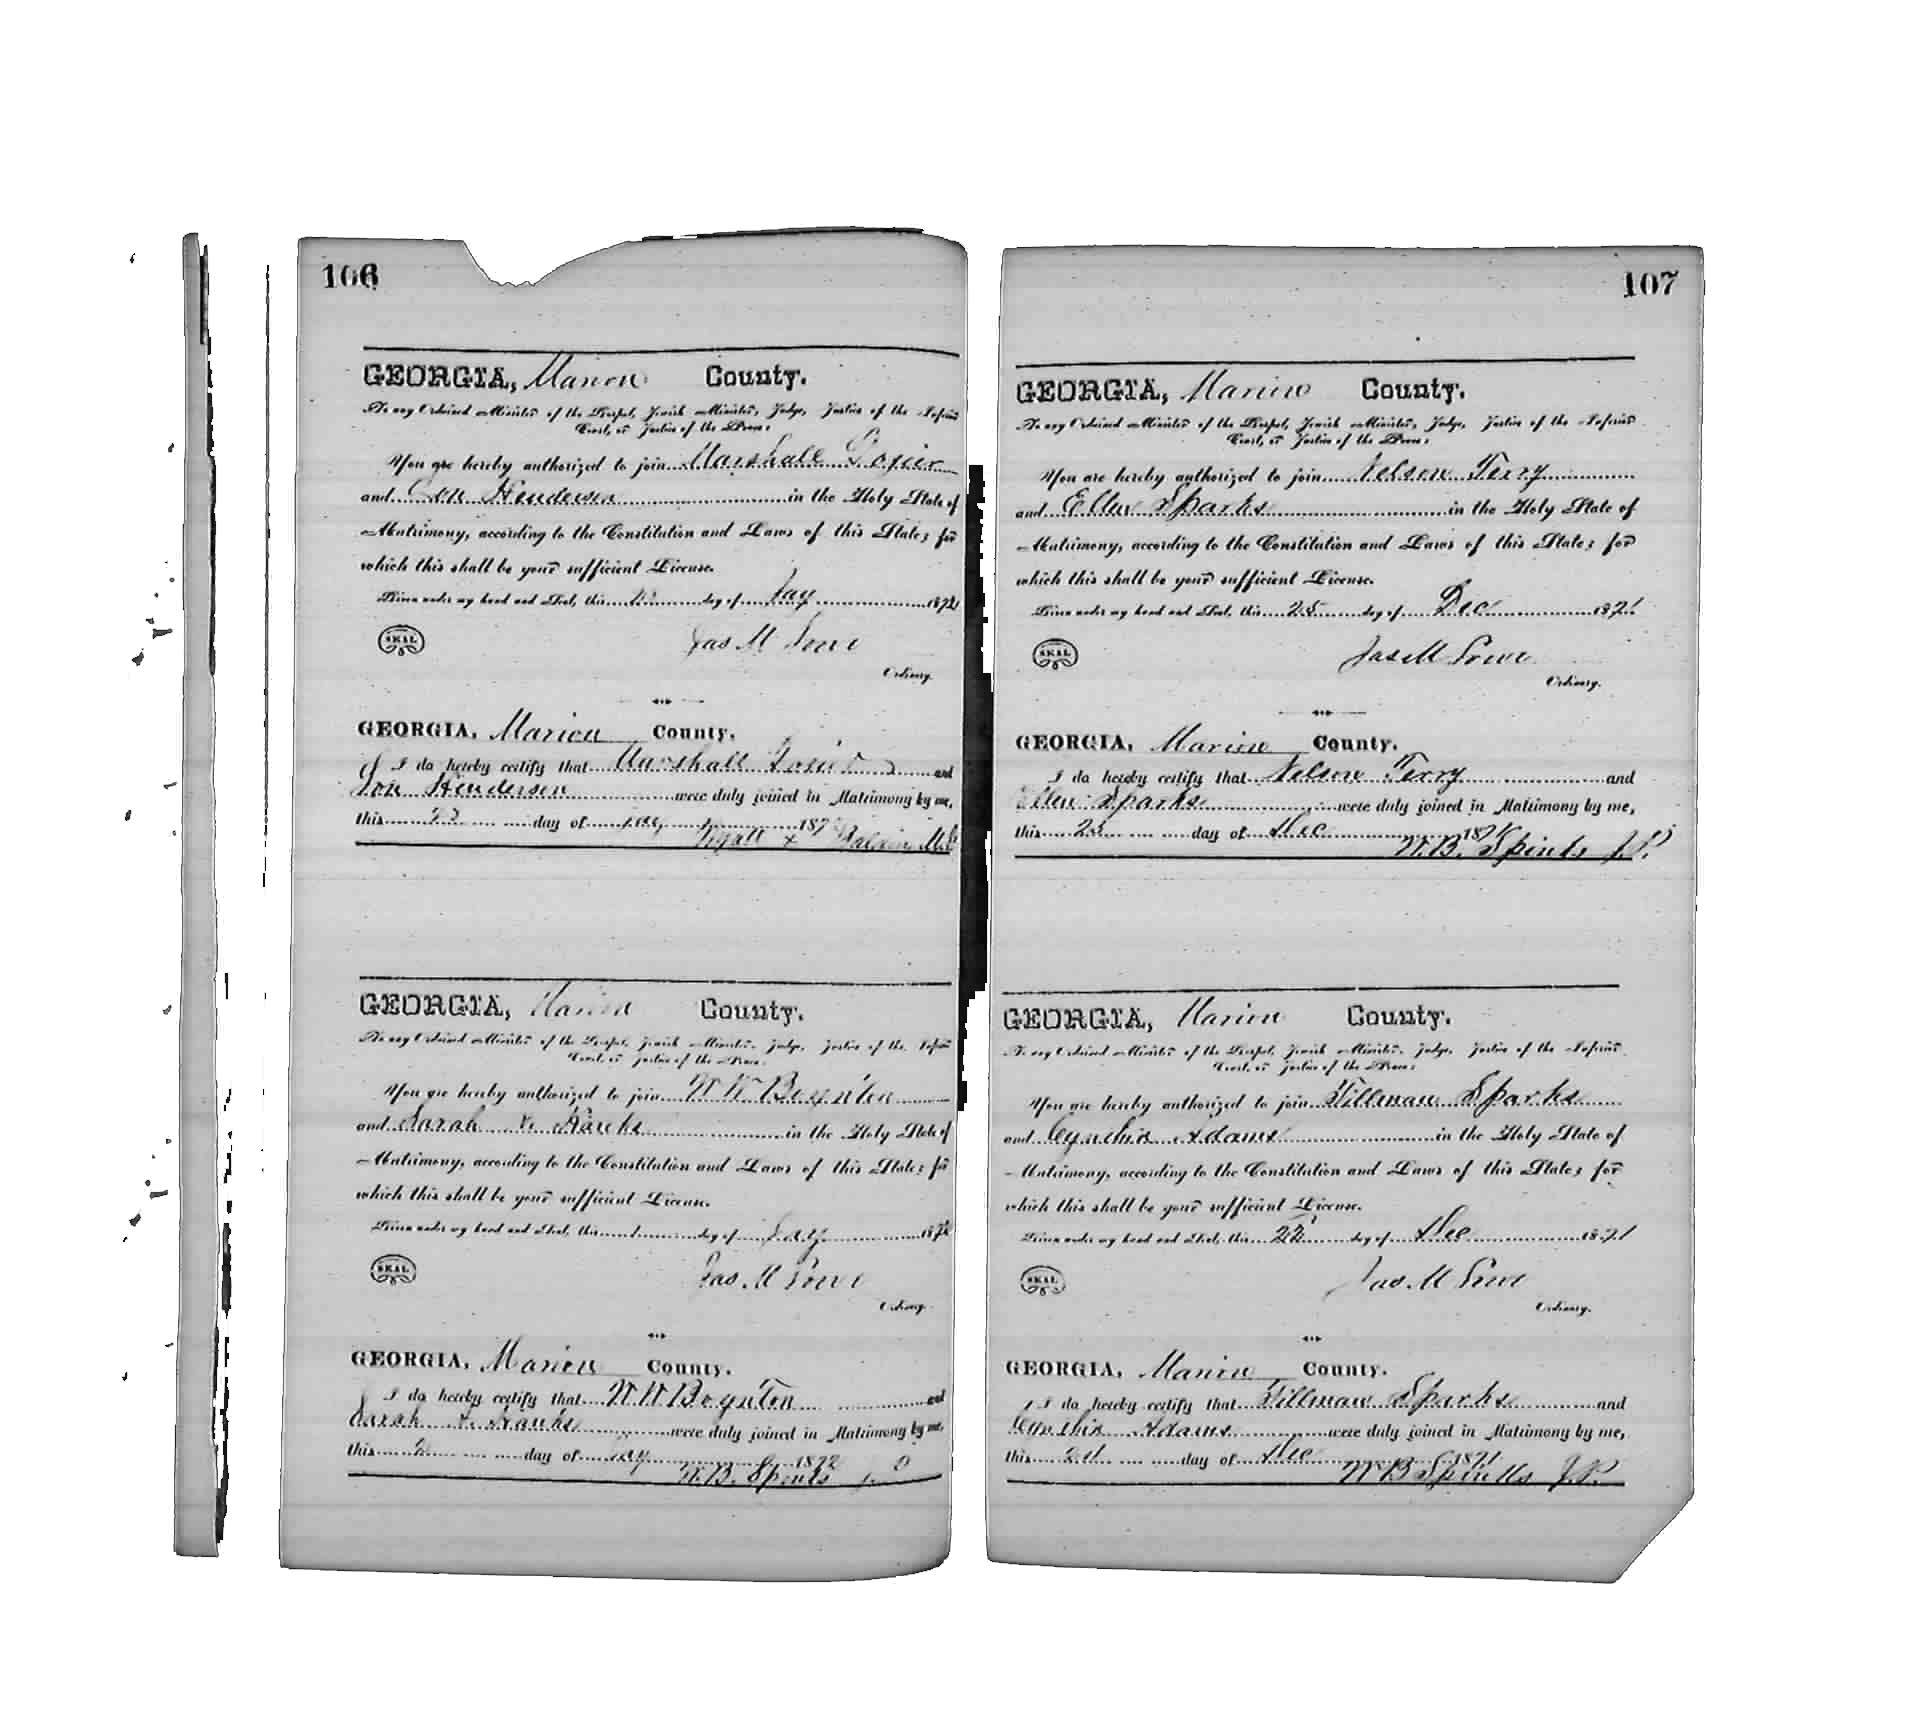 106
GEORGIA, Marion County.
To any Ordained Minister of the Gospel, Jewish Minister, Judge, Justice of the Inferior
Court, or Justice of the Peace:
You are hereby authorized to join Marshall
and Henderson in the Holy State of
Matrimony, according to the Constitution and Laws of this State; for
which this shall be your sufficient License.
Given under my hand and Seal, this day of Jay 1872
SEAL
Jas M Lowe
Ordinary.
GEORGIA, Marion County.
I do hereby certify that Marshall and
Henderson were duly joined in Matrimony by me,
this day of Jay 187
Wyatt x
GEORGIA, Marion County.
To any Ordained Minister of the Gospel, Jewish Minister, Judge, Justice of the Inferior
Court, or Justice of the Peace:
You are hereby authorized to join W W Boynton
and Sarah in the Holy State of
Matrimony, according to the Constitution and Laws of this State; for
which this shall be your sufficient License.
Given under my hand and Seal, this 1 day of Jay 1872
SEAL
Jas. M Lowe
Ordinary.
GEORGIA, Marion County.
I do hereby certify that W W Boynton and
Sarah A. were duly joined in Matrimony by me,
this 2 day of Jay 1872
W. B. Spinks J. P
107
GEORGIA, Marion County.
To any Ordained Minister of the Gospel, Jewish Minister, Judge, Justice of the Inferior
Court, or Justice of the Peace:
You are hereby authorized to join Nelson Terry
and Ellen Sparks in the Holy State of
Matrimony, according to the Constitution and Laws of this State; for
which this shall be your sufficient License.
Given under my hand and Seal, this 25 day of Dec 1871
SEAL
Jas M Lowe
Ordinary.
GEORGIA, Marion County.
I do hereby certify that Nelson Terry and
Ellen Sparks were duly joined in Matrimony by me,
this 25 day of Dec 1871
W. B. Spinks J. P.
GEORGIA, Marion County.
To any Ordained Minister of the Gospel, Jewish Minister, Judge, Justice of the Inferior
Court, or Justice of the Peace:
You are hereby authorized to join Tillman Sparks
and Cynthia Adams in the Holy State of
Matrimony, according to the Constitution and Laws of this State; for
which this shall be your sufficient License.
Given under my hand and Seal, this 22 day of Dec 1871
SEAL
Jas. M Lowe
Ordinary.
GEORGIA, Marion County.
I do hereby certify that Tillman Sparks and
Cynthia Adams were duly joined in Matrimony by me,
this 24 day of Dec 1871
W B Spinks J. P.